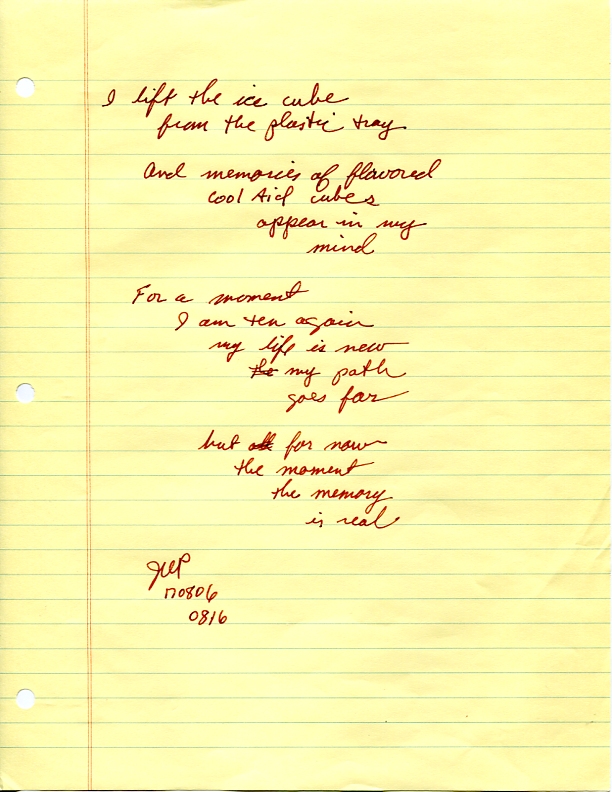 I lift the ice cube
from the plastic tray
And memories of flavored
cool Aid cubes
appear in my
mind
For a moment
I am ten again
my life is new
the my path
goes far
but all for now
the moment
the memory
is real
170806
0816